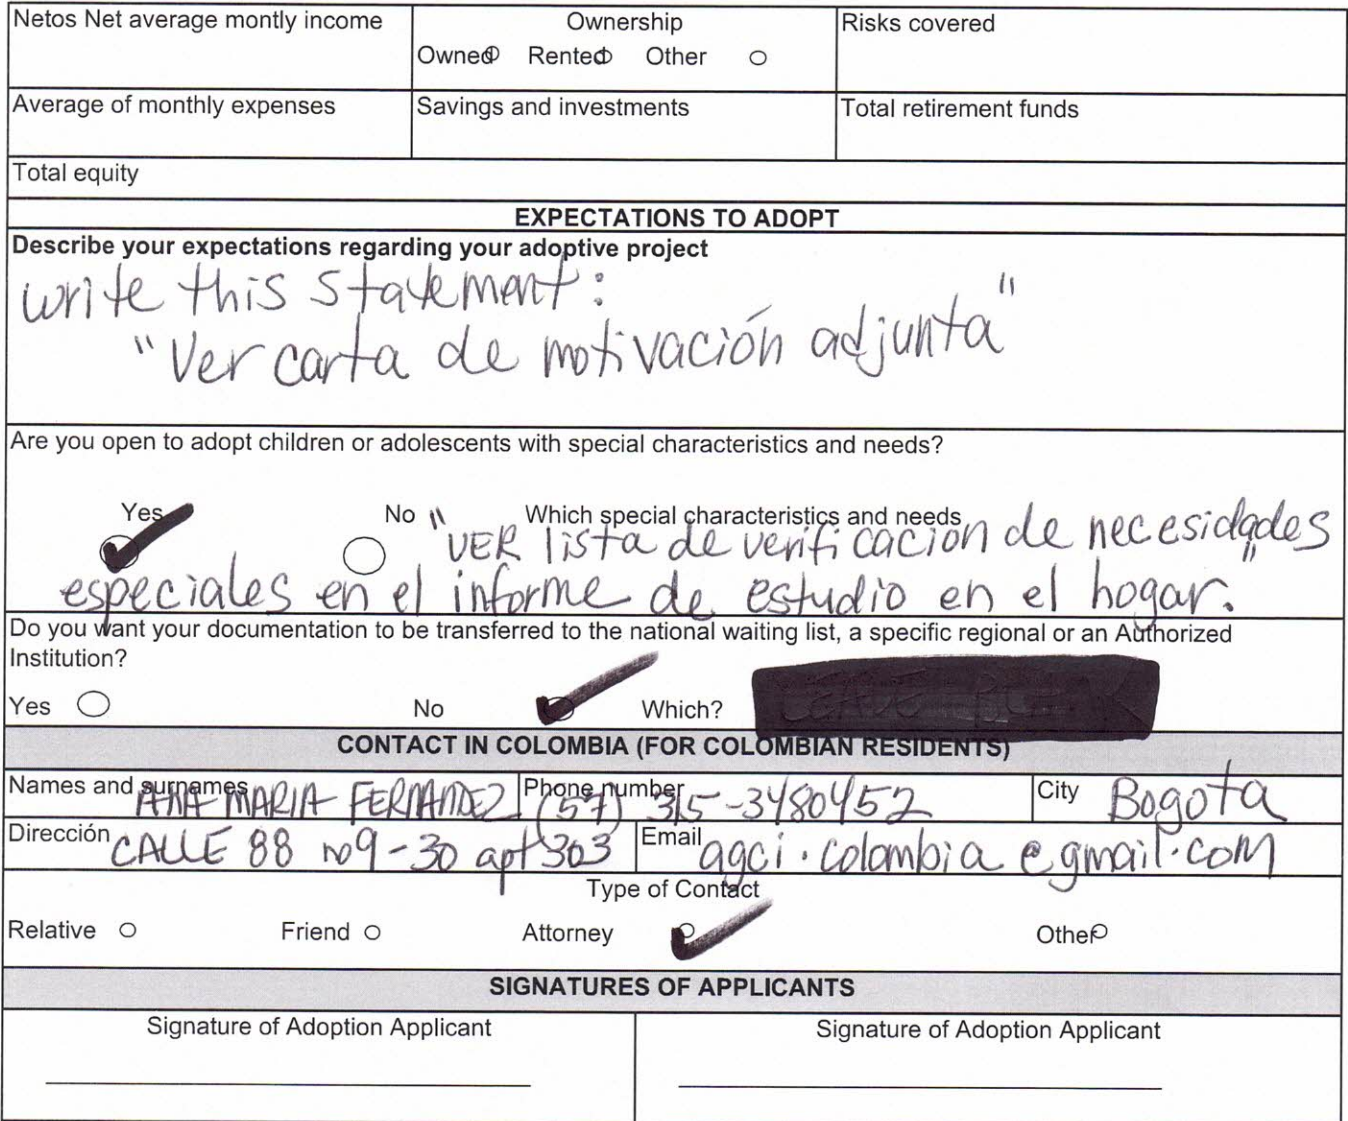 Netos Net average montly income
Ownership
Owned Rented Other
Risks covered
Average of monthly expenses
Savings and investments
Total retirement funds
Total equity
EXPECTATIONS TO ADOPT
Describe your expectations regarding your adoptive project
write this statement:
"Ver carta de motivación adjunta"
Are you open to adopt children or adolescents with special characteristics and needs?
Yes No Which special characteristics and needs
"VER lista de verificacion de necesidades
especiales en el informe de estudio en el hogar."
Do you want your documentation to be transferred to the national waiting list, a specific regional or an Authorized
Institution?
Yes No Which?
CONTACT IN COLOMBIA (FOR COLOMBIAN RESIDENTS)
Names and surnames ANA MARIA FERNANDEZ
Phone number (57) 315-3480452
City Bogota
Dirección CALLE 88 no9-30 apt 303
Email agci.colombia@gmail.com
Type of Contact
Relative Friend Attorney Other
SIGNATURES OF APPLICANTS
Signature of Adoption Applicant
Signature of Adoption Applicant